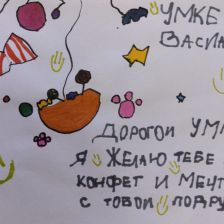 УМКЕ
ВАСИЛ
ДОРОГОИ УМ
Я ЖЕЛАЮ ТЕБЕ
КОНФЕТ И МЕЧТ
С ТОБОИ ПОДРУ